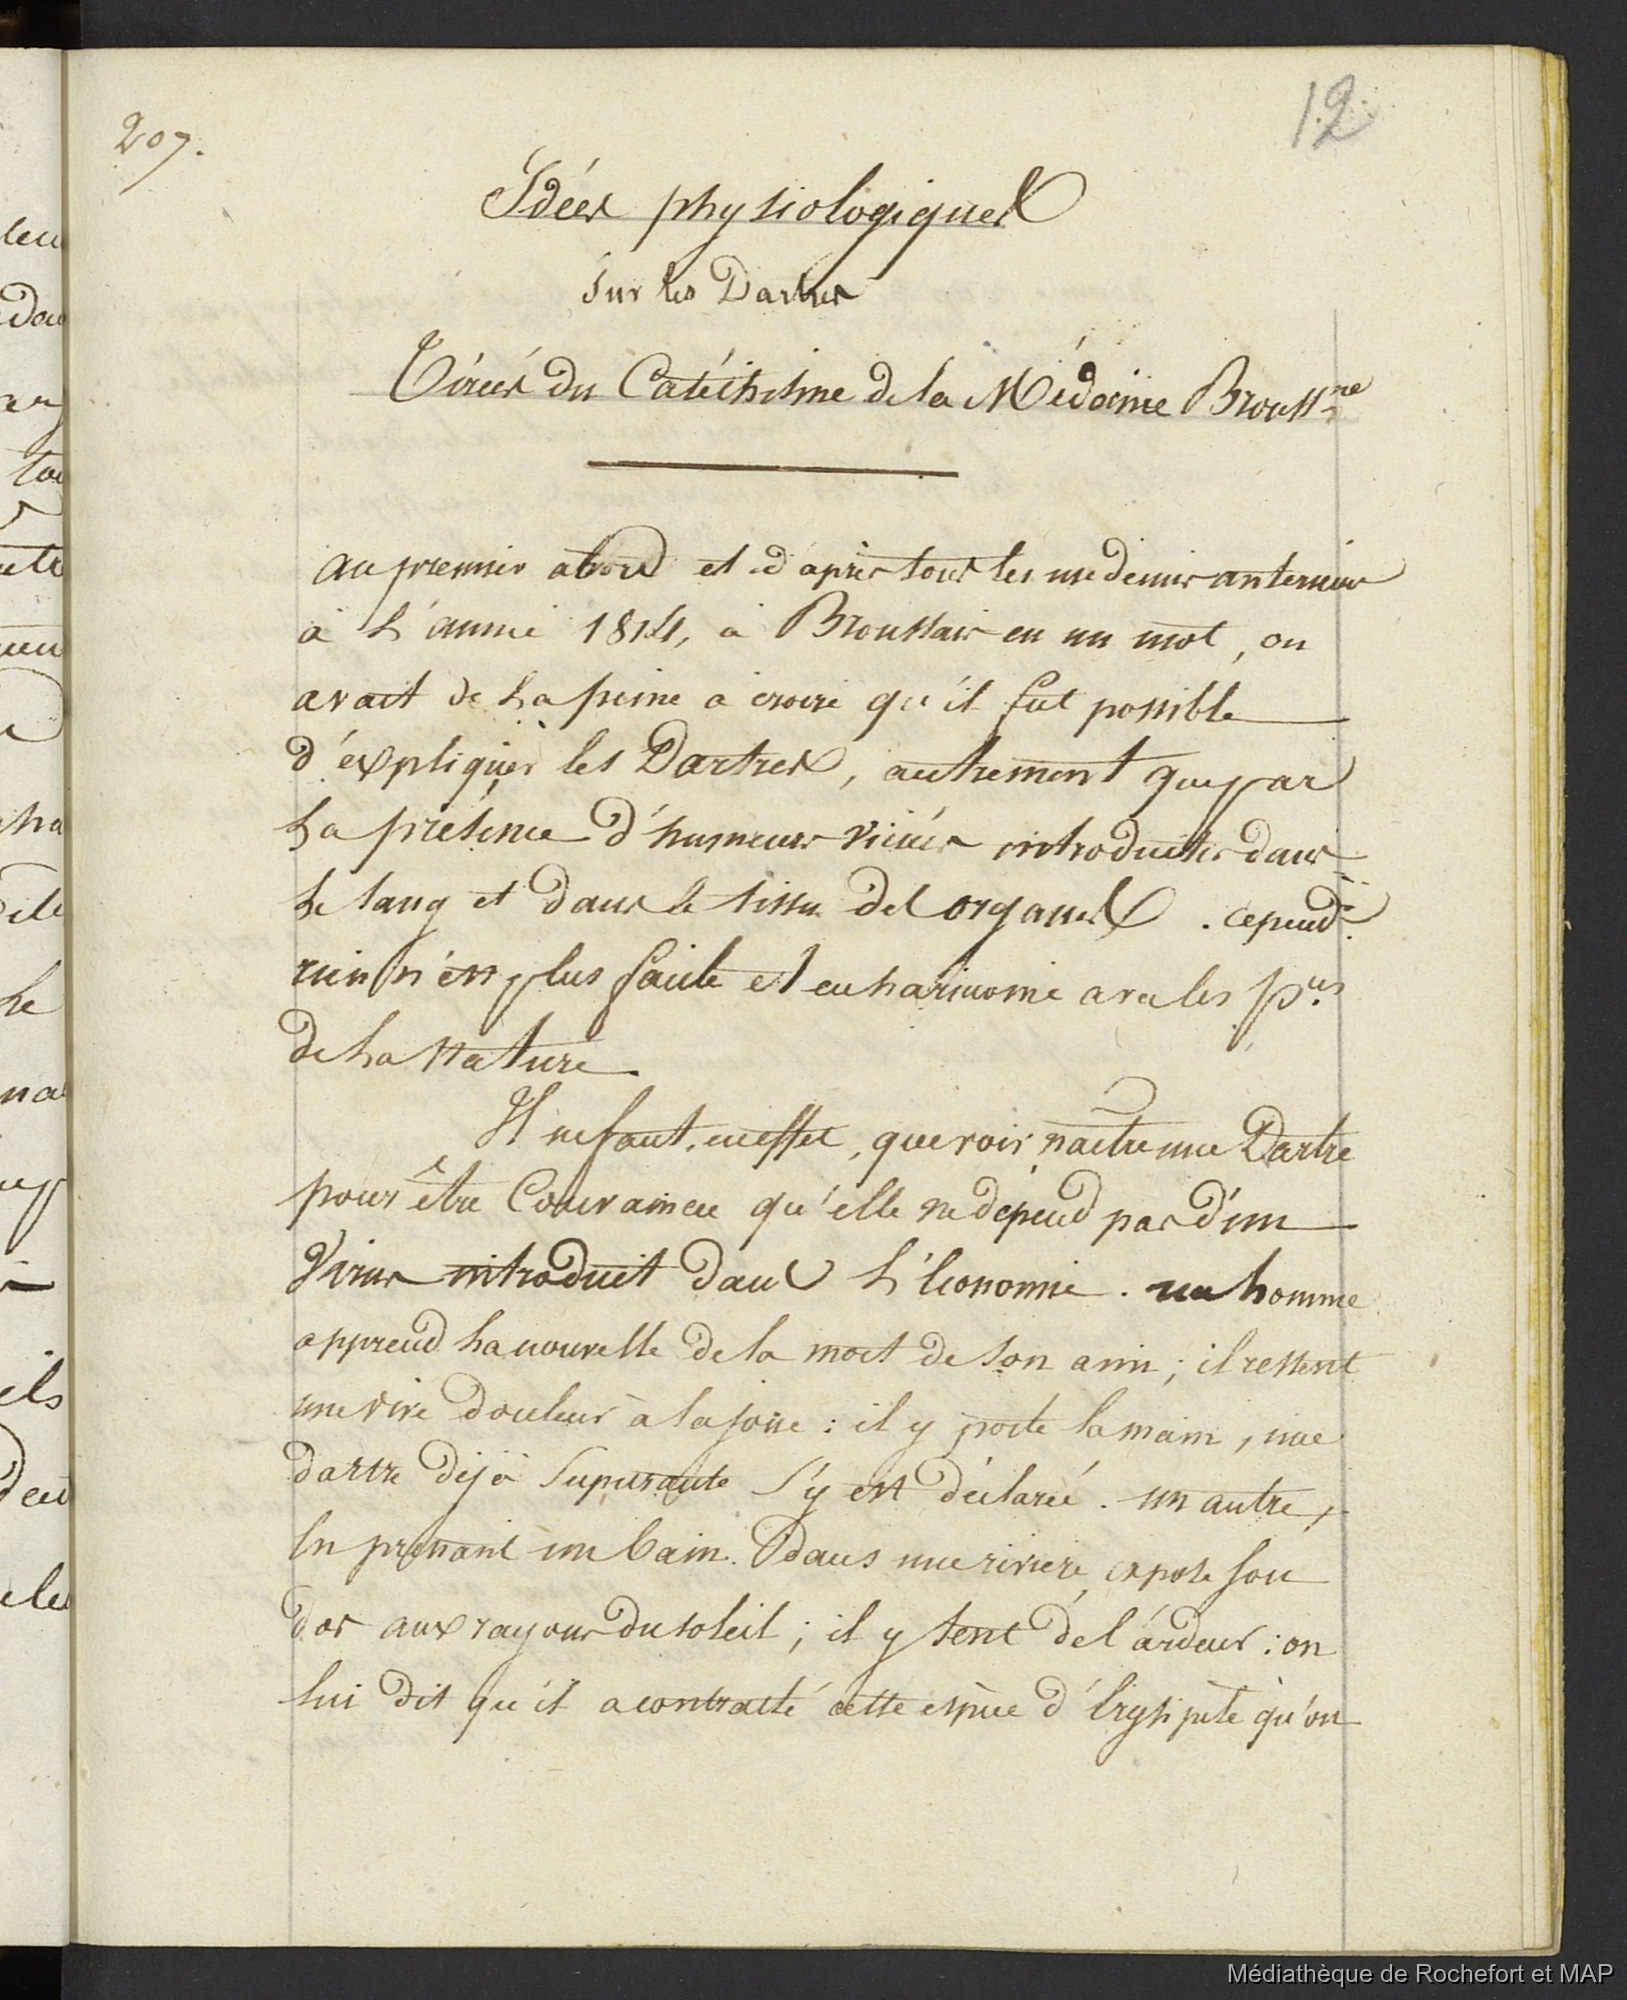 207.
12
Idées physiologiques
Sur les Dartres
Tirées du Catéchisme de la Médecine Brouss.ne
au premier abord et d'après tous les medecins anterieurs
à l'année 1814, à Broussais en un mot, on
avait de la peine a croire qu'il fut possible
d'expliquer les Dartres, autrement que par
la présence d'humeurs viciées introduites dans
le sang et dans le tissu des organes. cepend.t
rien n'est plus facile et en harmonie avec les p.es
de la Nature.
Il ne faut, en effet, que voir naître une Dartre
pour être Convaincu qu'elle ne dépend pas d'un
Virus introduit dans l'économie. un homme
apprend la nouvelle de la mort de son ami; il ressent
une vive douleur à la joue: il y porte la main, une
dartre déjà supurante s'y est déclarée. un autre,
en prenant un bain dans une rivière, expose son
dos aux rayons du soleil; il y sent de l'ardeur: on
lui dit qu'il a contracté cette espèce d'érysipèle qu'on
Médiathèque de Rochefort et MAP